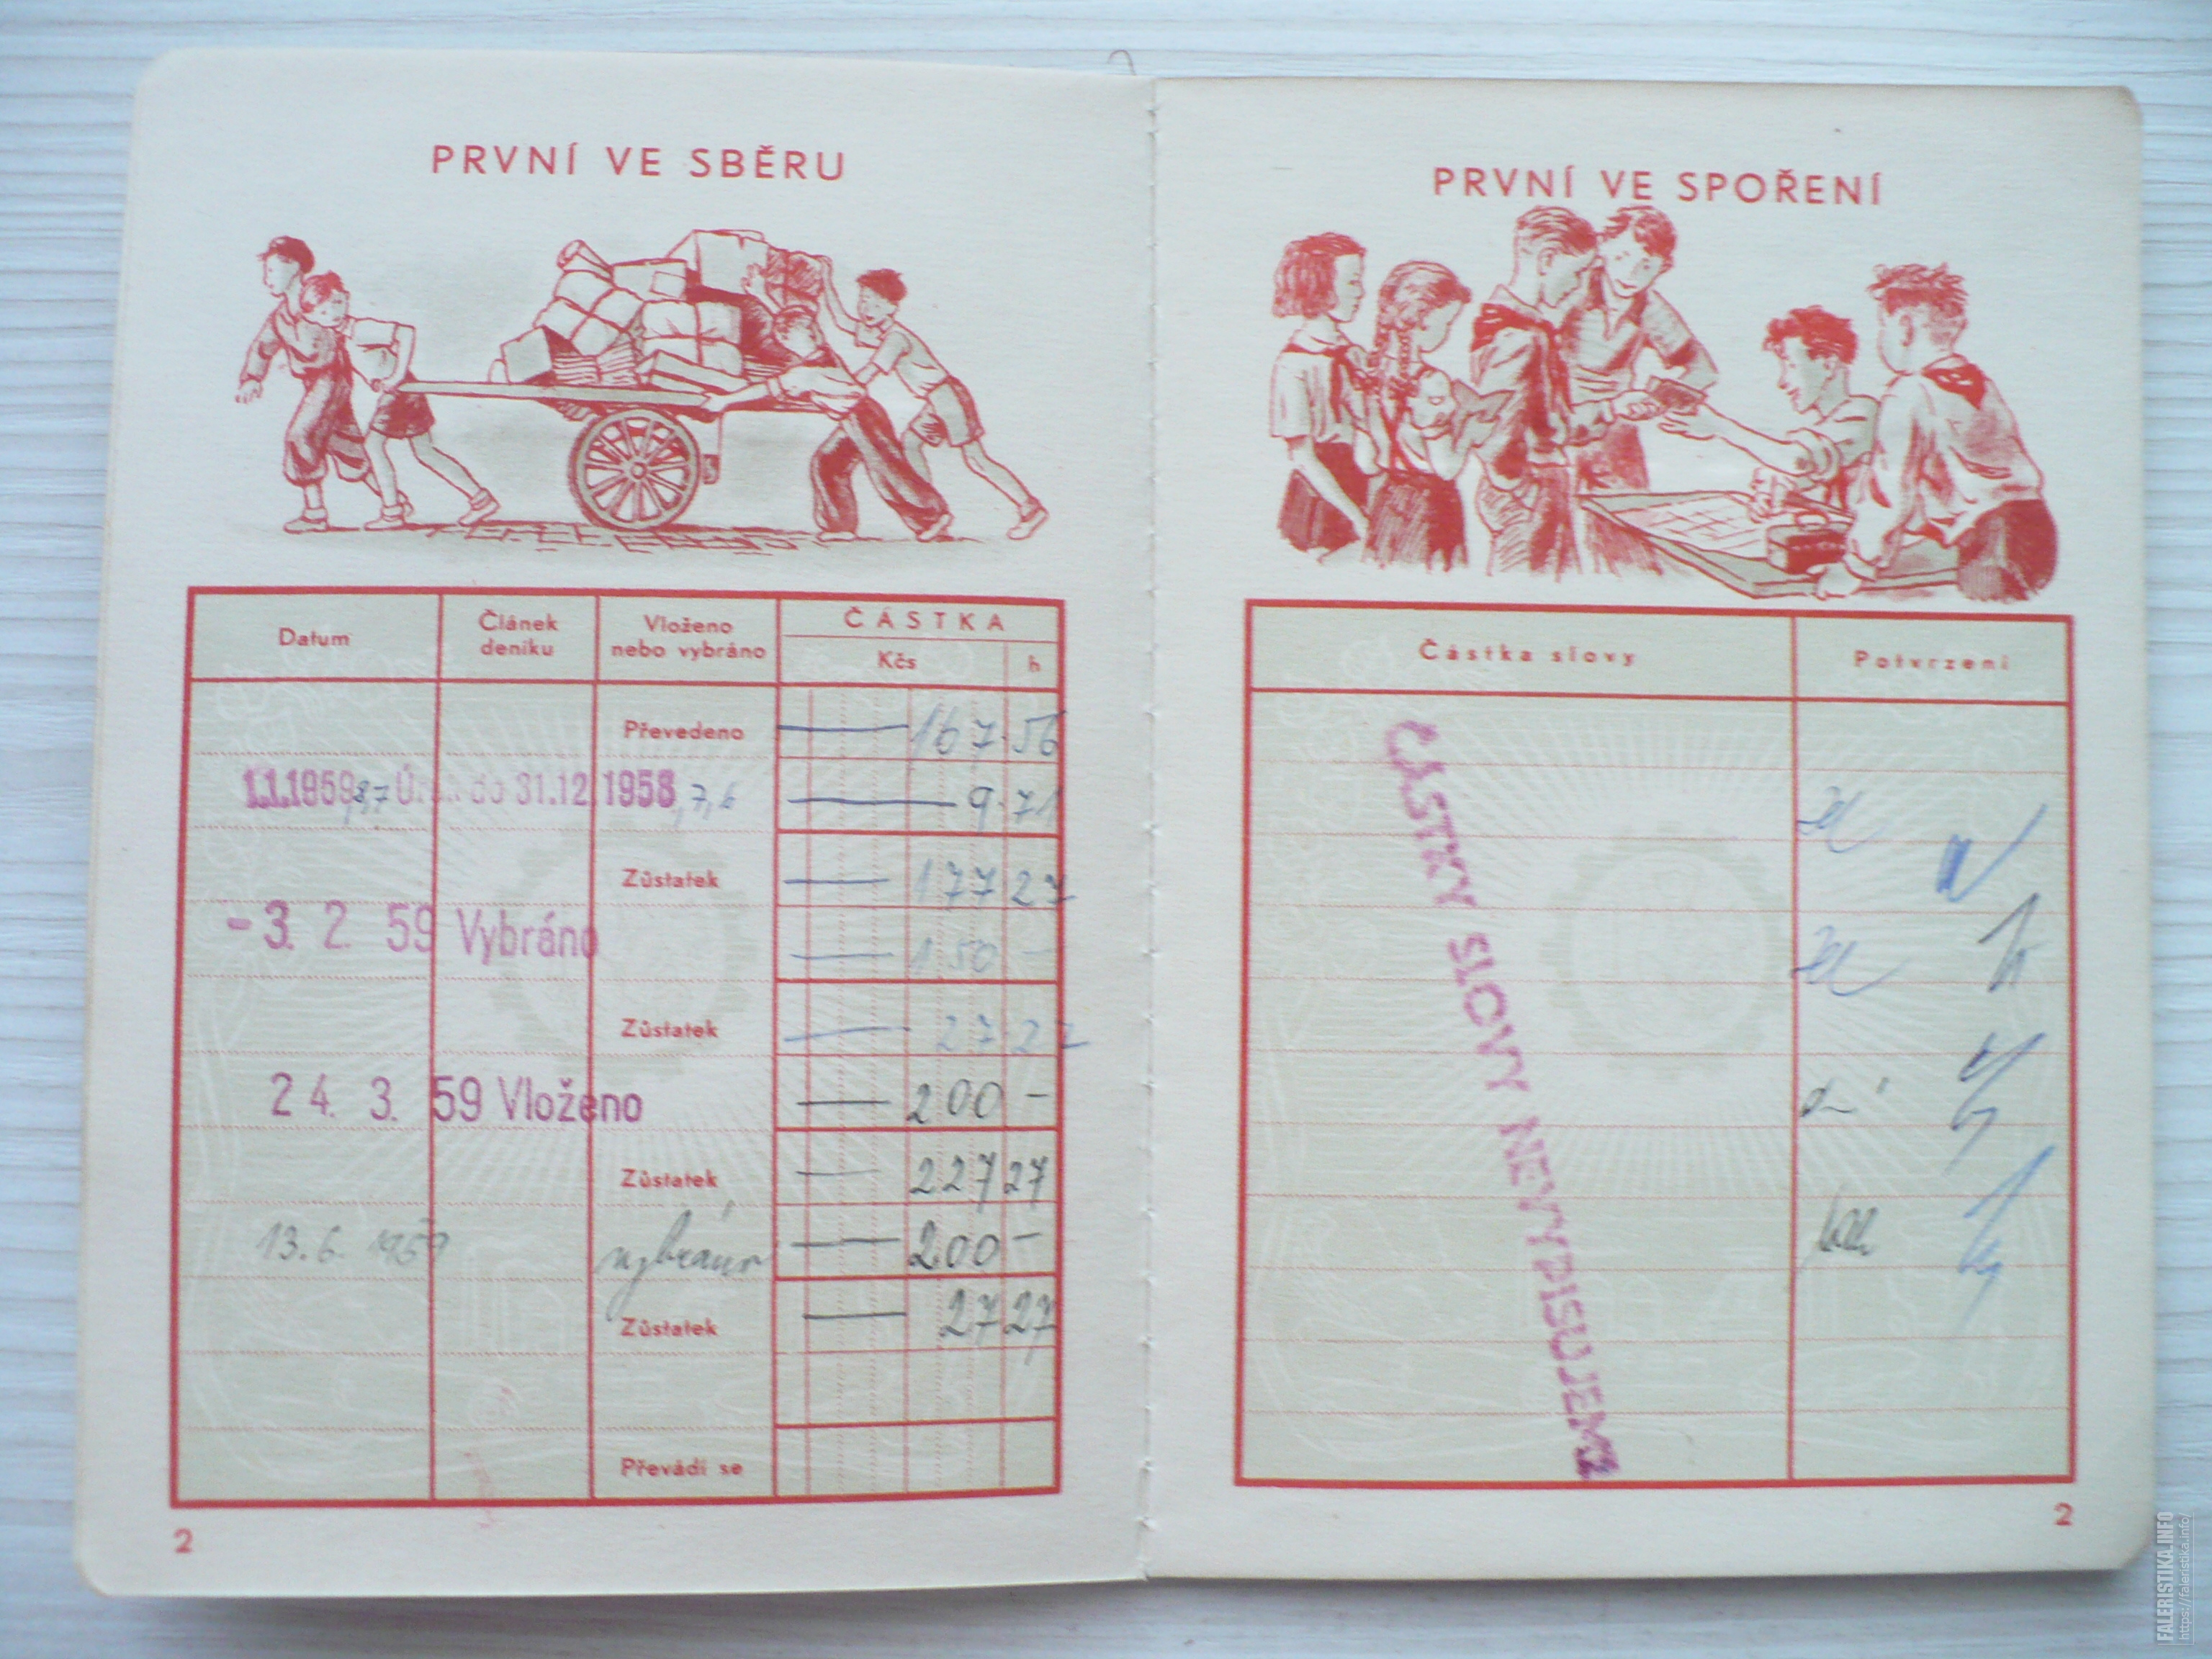 PRVNÍ VE SBĚRU
Datum
Článek deníku
Vloženo nebo vybráno
ČÁSTKA
Kčs
h
Převedeno 167.56
1.1.1959 do 31.12.1958 9.71
Zůstatek 177 27
-3. 2. 59 Vybráno 150 -
Zůstatek 27.27
24. 3. 59 Vloženo 200 -
Zůstatek 227 27
13.6. 1959 vybráno 200 -
Zůstatek 27 27
Převádí se
2
PRVNÍ VE SPOŘENÍ
Částka slovy
Potvrzení
ČÁSTKY SLOVY NEVYPISUJEME
2
FALERISTIKA.INFO
https://faleristika.info/